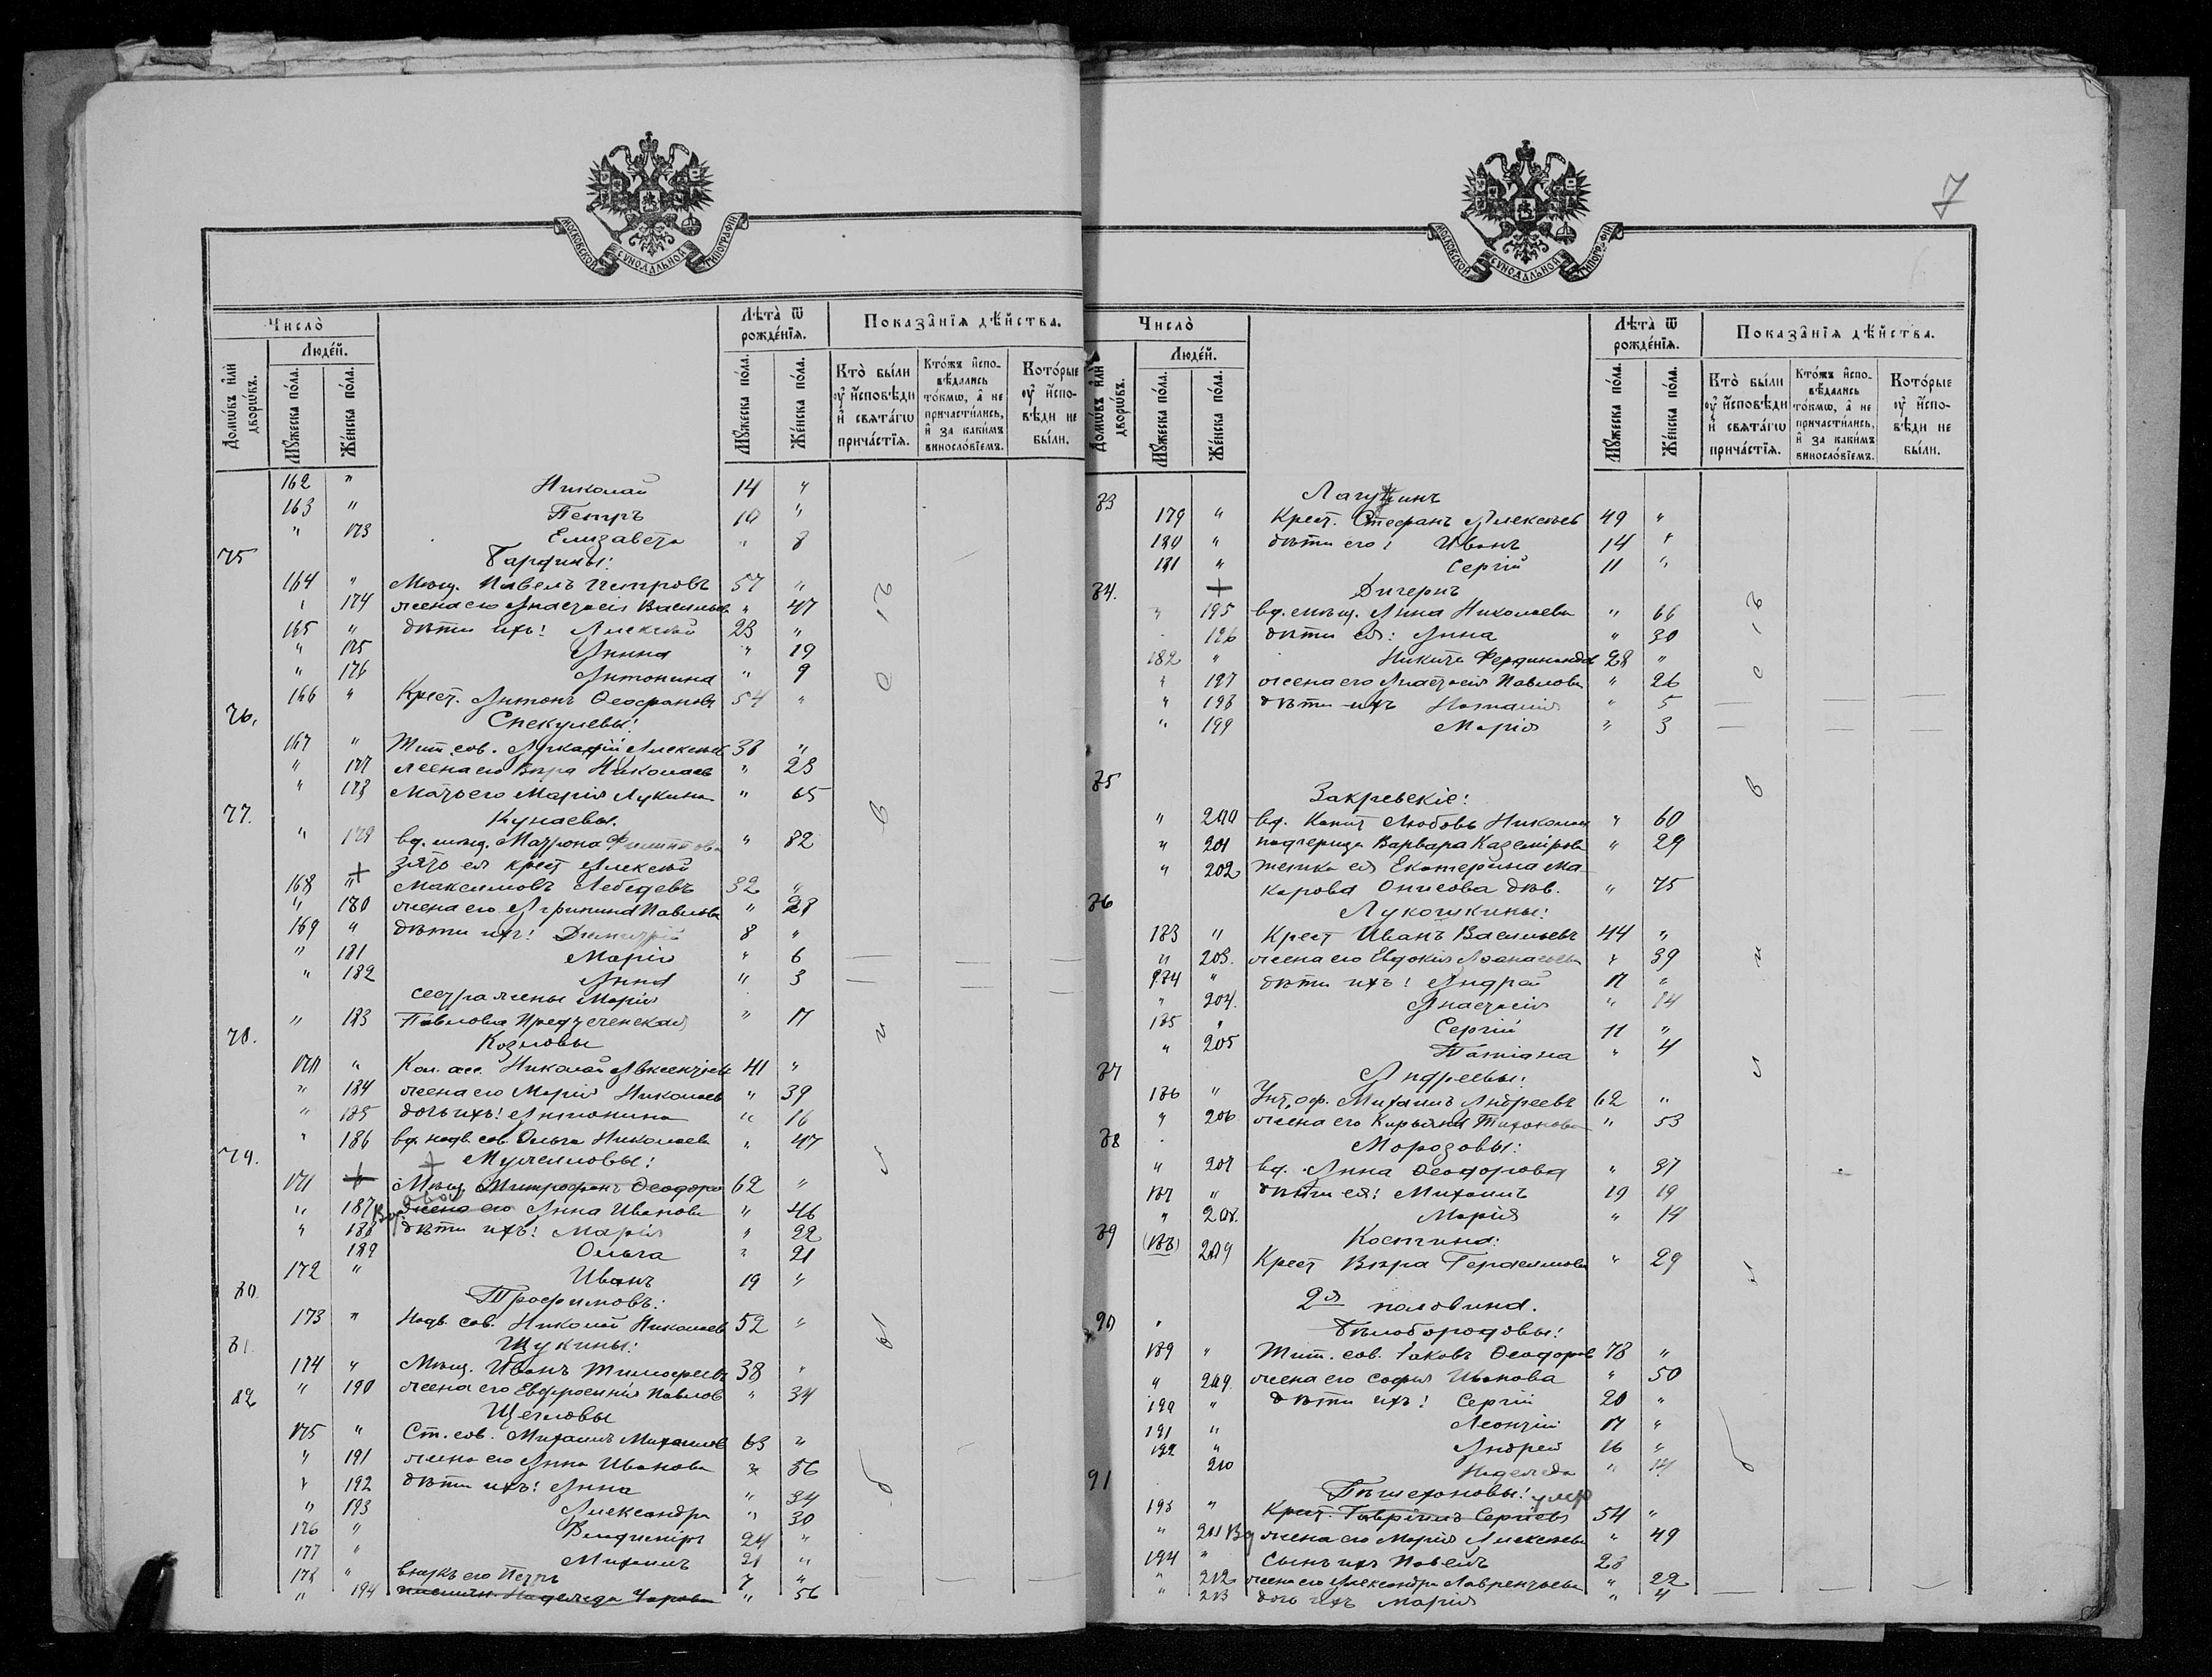 МОСКОВСКОЙ СѴНОДАЛЬНОЙ ТИПОГРАФІИ
Число̀
Лѣ́та ѿ рожде́нїѧ.
Показа̑нїѧ дѣ́йства.
Домѡ́въ и҆лѝ дворѡ́въ.
Люде́й.
Мꙋ́жеска по́ла.
Же́нска по́ла.
Мꙋ́жеска по́ла.
Же́нска по́ла.
Кто̀ бы́ли ᲂу҆ и҆сповѣ́ди и҆ свѧта́гѡ прича́стїѧ.
Кто́жъ и҆сповѣ́дались то́кмѡ, а҆ не причасти́лись, и҆ за каки́мъ виносло́вїемъ.
Кото́рые ᲂу҆ и҆сповѣ́ди не бы́ли.
162 " Николай 14 "
163 " Петръ 10 "
" 173 Елизавета " 8
75
164 " Мѣщ. Павелъ Петровъ 57 "
" 174 жена его Анастасія Васильев " 47
165 " дѣти ихъ: Алексѣй 23 "
" 175 Анна " 19
" 176 Антонина " 9
166 " Крест. Антонъ Ѳеофановъ 54 "
76. Спекулевы:
167 " Тит. сов. Аркадій Алексѣев 38 "
" 177 жена его Вѣра Николаев " 23
" 178 Мать его Марія Лукина " 65
77. Кунаевы.
" 179 вд. мѣщ. Матрона " 82
зять ея крест Алексѣй
168 " Максимовъ Лебедевъ 32 "
" 180 жена его Агрипина Павлова " 28
169 " дѣти ихъ: Димитрій 8 "
" 181 Марія " 6
" 182 Анна " 3
сестра жены Марія
" 183 Павлова Предтеченская " 17
78. Козловы
170 " Кол. асс. Николай Авксентіев 41 "
" 184 жена его Марія Николаев " 39
" 185 дочь ихъ: Антонина " 16
" 186 вд. надв. сов. Ольга Николаева " 47
79.
171 Мѣщ. Митрофанъ Ѳеодоро 62 "
" 187 Вдова жена его Анна Иванова " 46
" 188 дѣти ихъ: Марія " 22
189 Ольга " 21
172 " Иванъ 19 "
80. Трофимовъ:
173 " Надв. сов. Николай Николаев 52 "
81. Щукины:
174 " Мѣщ. Иванъ Тимофеевъ 38 "
" 190 жена его Евфросинія Павлов " 34
82 Щегловы
175 " Ст. сов. Михаилъ Михаилов 63 "
" 191 жена его Анна Иванова " 56
" 192 дѣти ихъ: Анна " 34
" 193 Александра " 30
176 " Владиміръ 24 "
177 " Михаилъ 21 "
178 " внукъ его Петръ 7 "
" 194 Надежда " 56
7
МОСКОВСКОЙ СѴНОДАЛЬНОЙ ТИПОГРАФІИ
Число̀
Лѣ́та ѿ рожде́нїѧ.
Показа̑нїѧ дѣ́йства.
Домѡ́въ и҆лѝ дворѡ́въ.
Люде́й.
Мꙋ́жеска по́ла.
Же́нска по́ла.
Мꙋ́жеска по́ла.
Же́нска по́ла.
Кто̀ бы́ли ᲂу҆ и҆сповѣ́ди и҆ свѧта́гѡ прича́стїѧ.
Кто́жъ и҆сповѣ́дались то́кмѡ, а҆ не причасти́лись, и҆ за каки́мъ виносло́вїемъ.
Кото́рые ᲂу҆ и҆сповѣ́ди не бы́ли.
83
179 " Крест. Стефанъ Алексѣевъ 49 "
180 " дѣти его: Иванъ 14 "
181 " Сергій 11 "
84. Дигеръ
" 195 вд. мѣщ. Анна Николаева " 66
196 дѣти ея: Анна " 30
182 " Никита Фердинандов 28 "
" 197 жена его Анастасія Павлова " 26
" 198 дѣти ихъ Наталія " 5
" 199 Марія " 3
85 Закревскіе:
" 200 вд. Капит Любовь Николаев " 60
" 201 падчерица Варвара Каземірова " 29
" 202 тетка ея Екатерина Ма-
карова Онисова дѣв. " 75
86 Лукошкины:
183 " Крест Иванъ Васильевъ 44 "
" 203. жена его Евдокія Аѳанасьева " 39
184 " дѣти ихъ: Андрей 17 "
" 204. Анастасія " 14
185 " Сергій 11 "
" 205 Татіана " 4
87 Андреевы:
186 " Унт. оф. Михаилъ Андреевъ 62 "
" 206 жена его Кирьяна Тихонова " 53
88 Морозовы:
" 207 вд. Анна Ѳеодорова " 37
187 " дѣти ея: Михаилъ 19 19
" 208. Марія " 14
89 (188) Костина:
209 Крест Вѣра Герасимова " 29
2я половина.
90 Бѣлобородовы:
189 " Тит. сов. Іаковъ Ѳеодоров 78 "
" 209. жена его Софія Иванова " 50
190 " дѣти ихъ: Сергій 20 "
191 " Леонтій 17 "
192 " Андрей 16 "
210 Надежда " 14
91 Пѣшехоновы: умр
193 " Крест. Гавріилъ Сергѣевъ 54 "
" 211 Вд жена его Марія Алексѣева " 49
194 " Сынъ ихъ Павелъ 28
" 212 жена его Александра Лаврентьева " 22
" 213 дочь ихъ Марія " 4